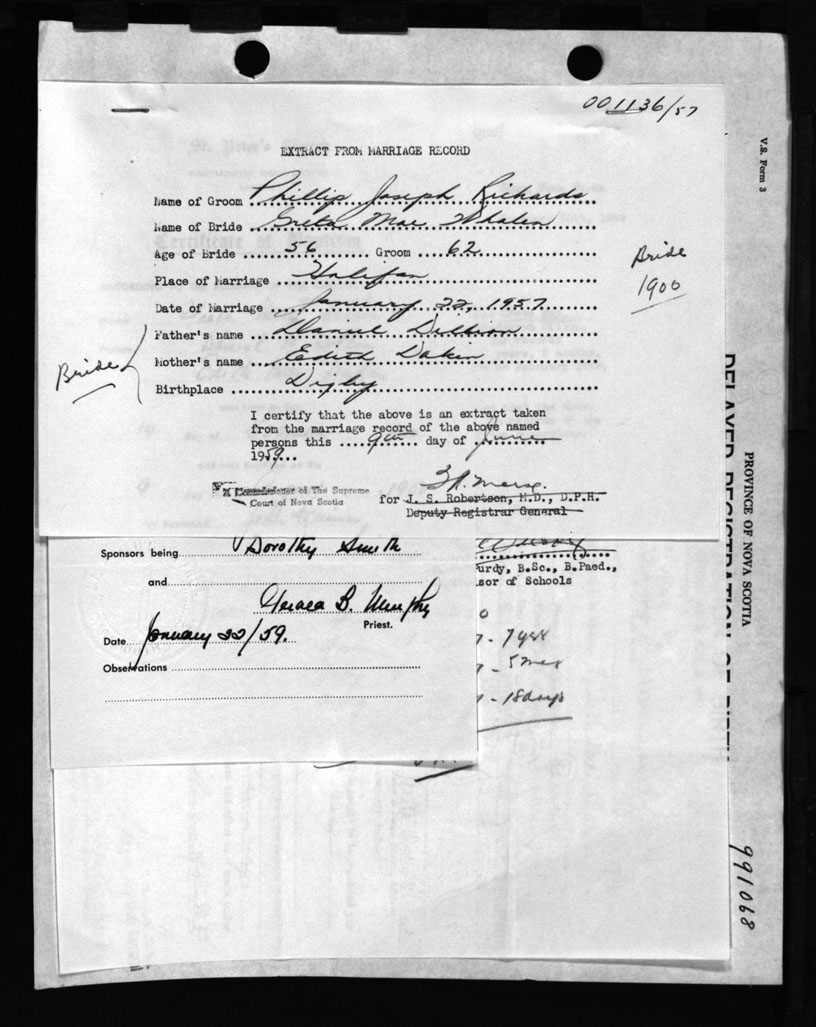 001136/57
EXTRACT FROM MARRIAGE RECORD
Name of Groom Phillip Joseph Richards
Name of Bride Greta Mae Whalen
Age of Bride 56 Groom 62
Place of Marriage Halifax
Date of Marriage January 22, 1957
Father's name Daniel
Mother's name Edith Dakin
Birthplace Digby
Bride
Bride
1900
I certify that the above is an extract taken
from the marriage record of the above named
persons this 9th day of June
1959
A Commissioner of The Supreme
Court of Nova Scotia
for J. S. Robertson, M.D., D.P.H.
Deputy Registrar General
Sponsors being Dorothy Smith
and
Gerald B. Murphy
Priest.
Date January 22/59.
Observations
urdy, B.Sc., B.Paed.,
sor of Schools
- 7 yrs
- 5 mos
- 18 days
V.S. Form 3
PROVINCE OF NOVA SCOTIA
DELAYED REGISTRATION OF BIRTH
991068